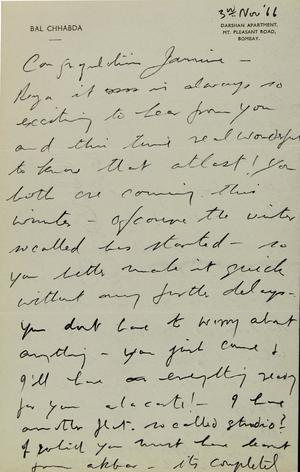 BAL CHHABDA
3rd Nov '66
DARSHAN APARTMENT,
MT. PLEASANT ROAD,
BOMBAY.
Congratulations Janine –
Raza it is always so
exciting to hear from you
and this time real wonderful
to know that atlast! you
both are coming this
winter – ofcourse the winter
socalled has started – so
you better make it quick
without any further delays –
you don't have to worry about
anything – you just come &
I'll have everything ready
for you alacarte! – I have
another flat. socalled studio?
of which you must have learnt
from akbar – its completely